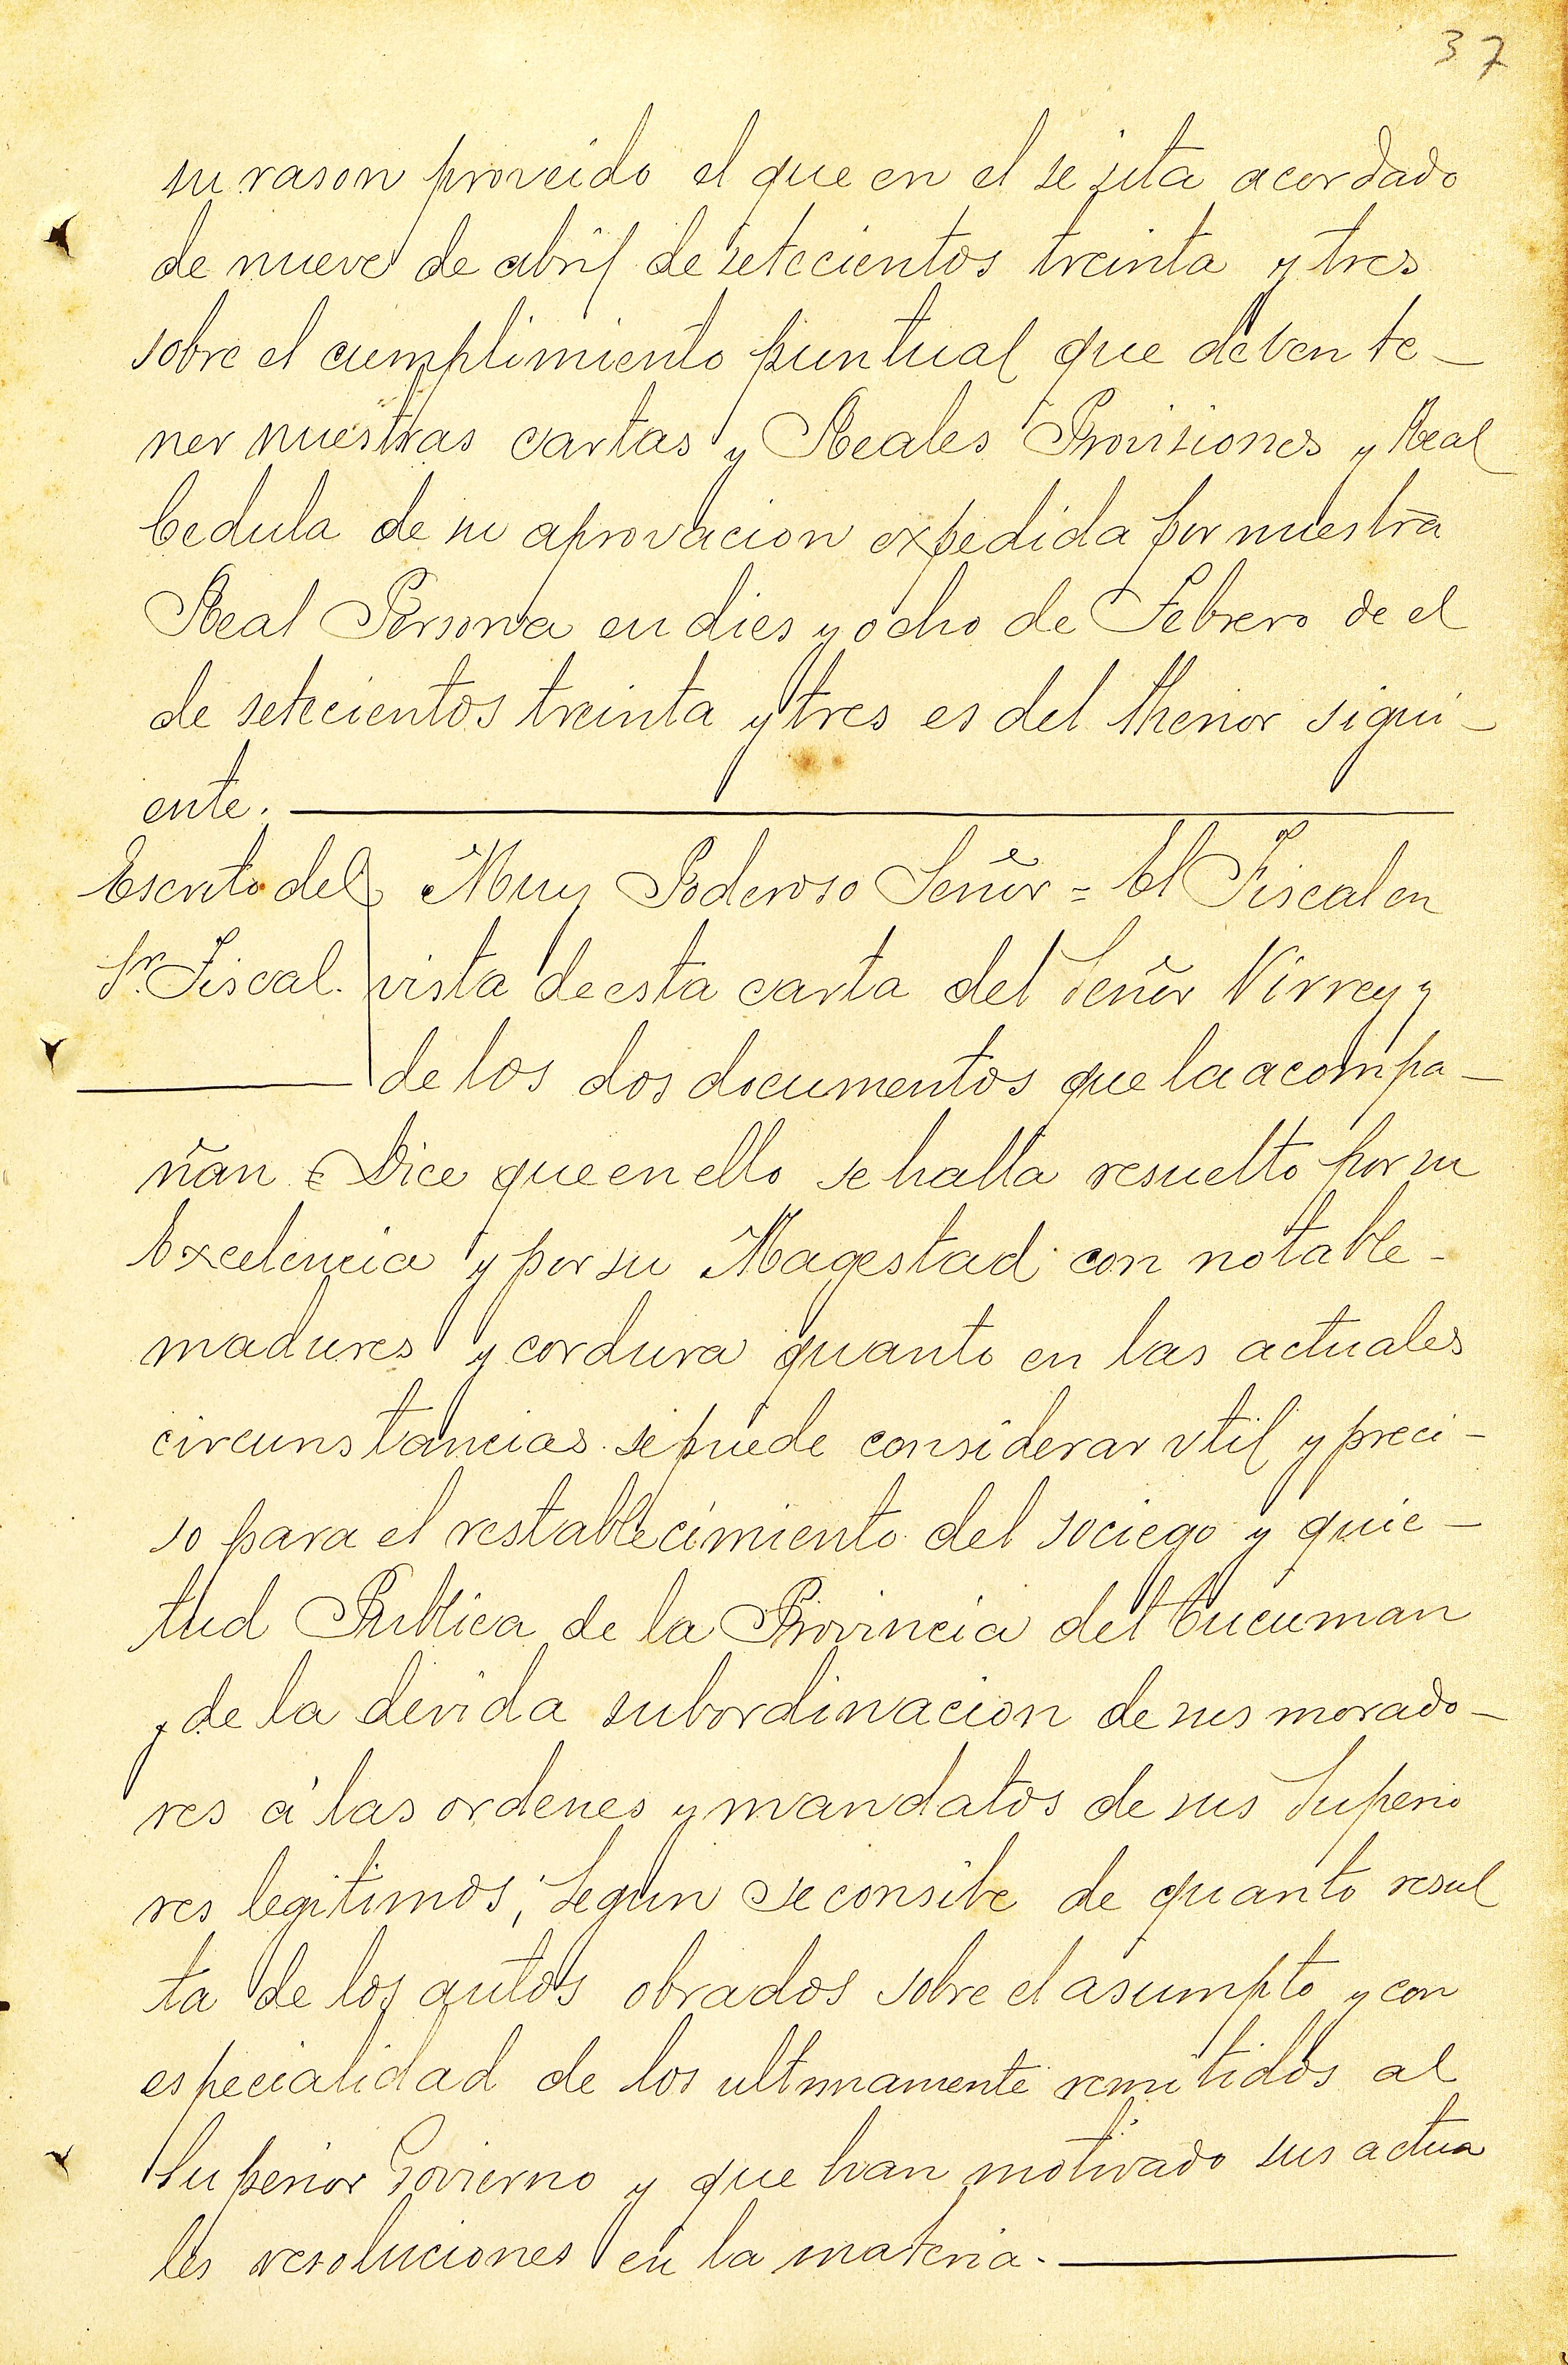 37
su rason proveido el que en el se sita acordado
de nueve de abril de setecientos treinta y tres
sobre el cumplimiento puntual que deben te-
ner nuestras cartas y Reales Provisiones y Real
Cedula de su aprovacion expedida por nuestra
Real Persona en dies y ocho de Febrero de el
de setecientos treinta y tres es del thenor sigui-
ente.
Escrito del Muy Poderoso Señor = El Fiscal en
Sr. Fiscal. vista de esta carta del Señor Virrey y
de los dos documentos que la acompa-
ñan = Dice que en ello se halla resuelto por su
Excelencia y por su Magestad con notable-
madures y cordura quanto en las actuales
circunstancias se puede considerar vtil y preci-
so para el restablecimiento del sociego y quie-
tud Publica de la Provincia del Tucuman
y de la devida subordinacion de sus morado-
res á las ordenes y mandatos de sus Superio
res legitimos; Segun se consibe de quanto resul
ta de los autos obrados sobre el asumpto y con
especialidad de los ultimamente remitidos al
Superior Govierno y que han motivado sus actua
les resoluciones en la materia.